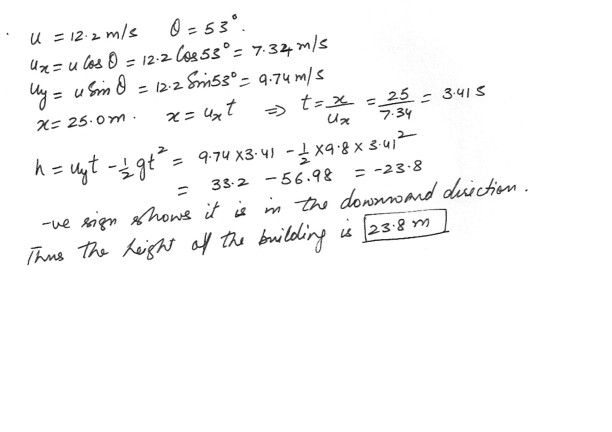 u = 12.2 m/s θ = 53°.
ux = u cos θ = 12.2 Cos 53° = 7.34 m/s
uy = u Sin θ = 12.2 Sin53° = 9.74 m/s
x = 25.0 m. x = uxt ⇒ t = x/ux = 25/7.34 = 3.41 s
h = uyt - 1/2 gt² = 9.74 x3.41 - 1/2 x9.8 x 3.41²
= 33.2 - 56.98 = -23.8
-ve sign shows it is in the downward direction.
Thus the height of the building is 23.8 m